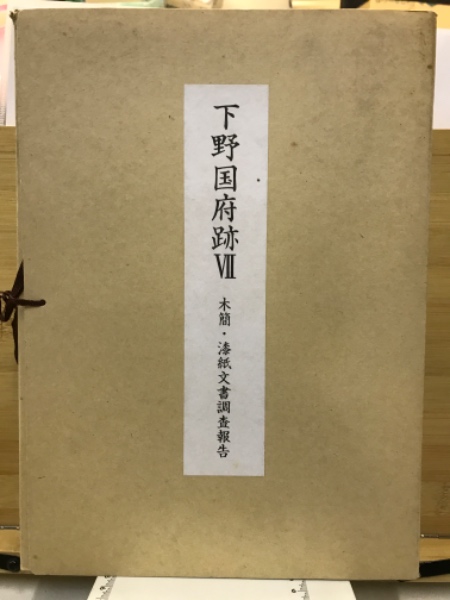 下野国府跡Ⅶ
木簡・漆紙文書調査報告